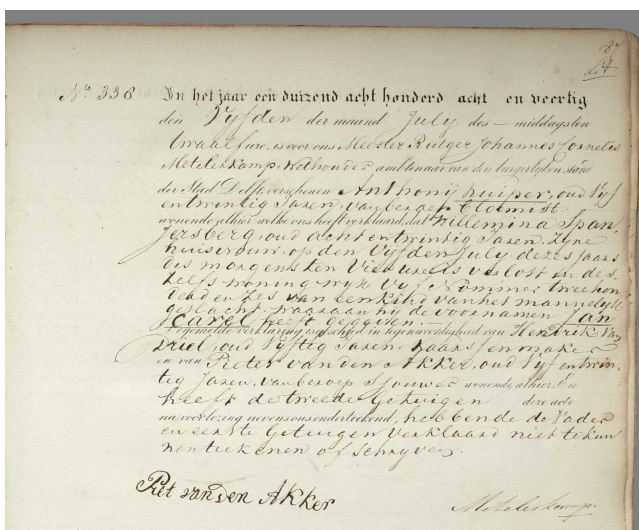 87
No 338 In het jaar een duizend acht honderd acht en veertig
den Vyfden der maand July des – middags ten
twaalf ure, is voor ons Meester Rutger Johannes Cornelis
Metelerkamp, Wethouder ambtenaar van den burgerlyken stand
der Stad Delft, verschenen Anthonij huiper, oud Vyf
entwintig Jaren, van beroep
wonende alhier welke ons heeft verklaard, dat Willemina Span
jersberg, oud acht entwintig Jaren. Zyne
huisvrouw, op den Vyfden July dezes Jaars
des morgens ten Vier ure is verlost in des
zelfs woning wyk Vyf Nommer twee hon
derd en Zes van een kind van het mannelyk
geslacht, waaraan hij de voornamen Jan
Karel heeft gegeven.
Degemelde verklaring is geschied in tegenwoordigheid van Hendrik Van
Driel, oud Vyftig Jaren. Kaarsenmaker
en van Pieter van den Akker, oud Vyf entwin
tig Jaren, van beroep Sjouwer wonende alhier. En
heeft de tweede Getuigen deze acte
na voorlezing nevens ons onderteekend, hebbende de Vader
en eerste Getuigen verklaard niet te kun
nen teekenen of schryven.
Piet van den Akker
Metelerkamp.